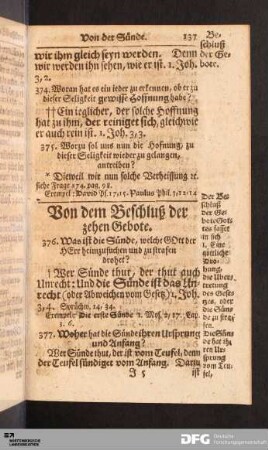 Von der Sünde. 137
wir ihm gleich seyn werden. Denn
wir werden ihn sehen, wie er ist. 1. Joh.
3, 2.
374. Woran hat es ein ieder zu erkennen, ob er zu
dieser Seligkeit gewisse Hoffnung habe?
†† Ein ieglicher, der solche Hoffnung
hat zu ihm, der reiniget sich, gleichwie
er auch rein ist. 1. Joh. 3, 3.
375. Worzu sol uns nun die Hofnung, zu
dieser Seligkeit wieder zu gelangen,
antreiben?
* Dieweil wir nun solche Verheissung ꝛc.
siehe Frage 274. pag. 98.
Exempel: David Ps. 17, 15. Paulus Phil. 3, 12-14
Von dem Beschluß der
zehen Gebote.
376. Was ist die Sünde, welche GOtt der
HErr heimzusuchen und zu strafen
drohet?
† Wer Sünde thut, der thut auch
Unrecht: Und die Sünde ist das Un-
recht (oder Abweichen vom Gesetz) 1. Joh.
3, 4. Sprüchw. 14, 34.
Exempel: Die erste Sünde 2. Mos. 2, 17. Cap.
3. 6.
377. Woher hat die Sünde ihren Ursprung
und Anfang?
Wer Sünde thut, der ist vom Teufel; denn
der Teufel sündiget vom Anfang. Darzu
J 5 ist
Be-
schluß
der Ge-
bote.
Der Be-
schluß
der
Gebote
in sich
1. Eine
Dro-
hung,
die Sünde
zu stra-
fen.
Die Sün-
de hat ih-
ren Ur-
sprung
vom Teu-
fel,
DFG Deutsche
Forschungsgemeinschaft